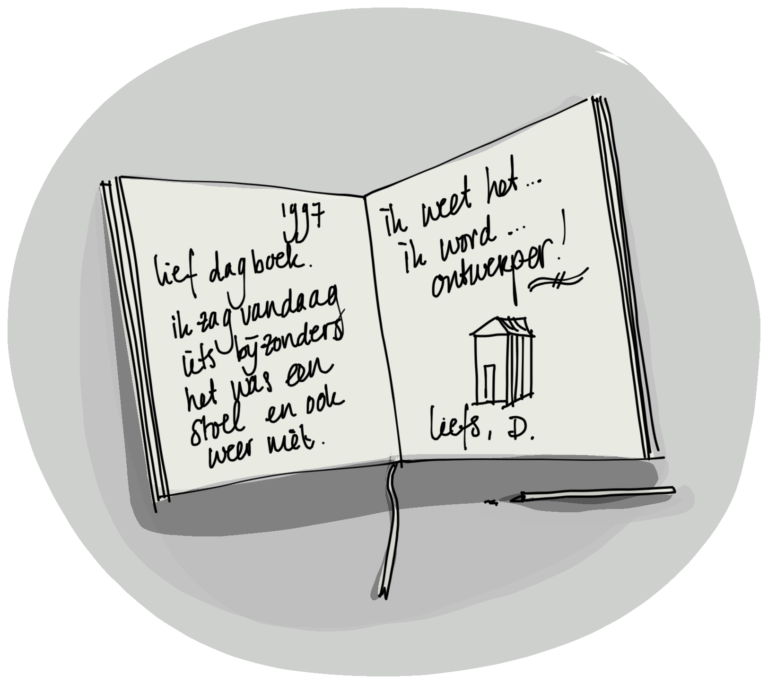 1997
lief dagboek.
ik zag vandaag
iets bijzonders
het was een
stoel en ook
weer niet.
ik weet het...
ik word...
ontwerper!
liefs, D.